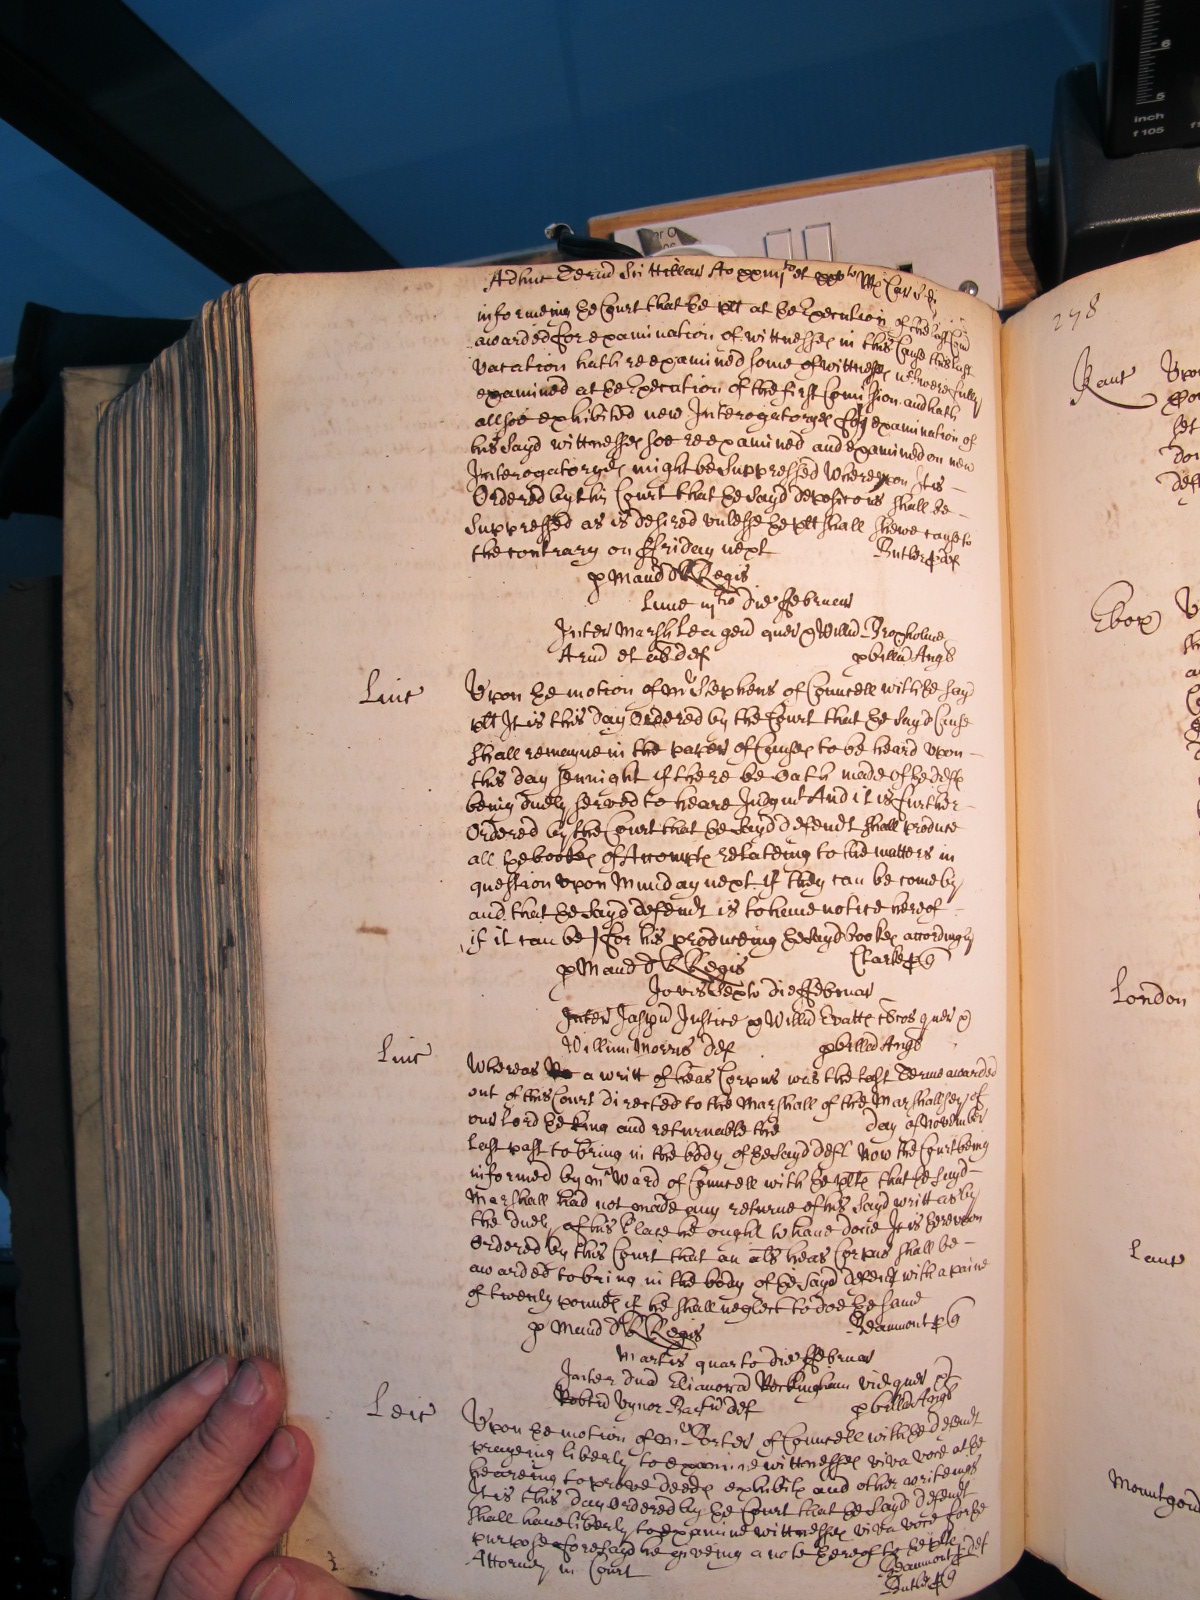 Adhuc Term Sci Hillar Ao xxiijo et
informeing ye Court that ye plt at ye Execution of the last Com
awarded for examination of wittnesses in this Cause this last
vacation hath reexamined some of wittnesses wch were fully
examined at ye Execution of the first Comission and hath
allsoe exhibited new Interogatoryes for examination of
his sayd wittnesses soe reexamined and examined on new
Interogatoryes might be Suppressed Whereupon It is
Ordered by this Court that ye sayd depositions shall be
Suppressed as is desired unlesse ye plt shall shewe cause to
the contrary on ffriday next
Butler p def
p Maund R Regis
Lune iijtio die ffebruar
Inter Marsh Lea gen quer Willm Broxholme
Arm et al def
p billa Angl
Linc
Upon ye motion of mr Stephens of Councell with ye sayd
plt It is this day Ordered by the Court that ye sayd Cause
shall remayne in the paper of Causes to be heard upon
this day sennight if there be oath made of ye defts
being duely served to heare Judgmt And it is further
Ordered by the Court that ye sayd defendt shall produce
all ye bookes of Accompts relateing to the matters in
question upon Munday next if they can be come by
and that ye sayd defendt is to have notice hereof
if it can be for his produceing ye sayd bookes accordingly
Clarke p q
p Maund R Regis
Jovis Sexto die ffebruar
Inter Jasper Justice Willm Evatt quer
William Morris def
p billa Angl
Linc
Whereas a writt of heas Corpus was the last Terme awarded
out of this Court directed to the Marshall of the Marshallsey of
our Lord ye King and returnable the day of November
last past to bring in the body of ye sayd deft Now the Court being
informed by mr Ward of Councell with ye plts that ye sayd
Marshall had not made any returne of his sayd writt as by
the duety of his Place he ought to have done It is hereupon
Ordered by this Court that an als heas Corpus shall be
awarded to bring in the body of ye sayd defendt with a paine
of twenty pounds if he shall neglect to doe ye same
Beamont p q
p Maund R Regis
Martis quarto die ffebruar
Inter Dnam Elianoram Rockingham vid quer
Robert Vynor Bart def
p billa Angl
Leic
Upon ye motion of mr Porter of Councell with ye defendt
prayeing liberty to examine wittnesses viva voce at ye
heareing to prove deeds exhibits and other writeings
It is this day Ordered by ye Court that ye sayd defendt
shall have liberty to examine wittnesses viva voce for ye
purpose aforesayd he giveing a note hereof to ye plts
Attorney in Court
Beamont p def
Butler p q
278
Kanc
Ebor
London
Lanc
inch
f 105
6
5